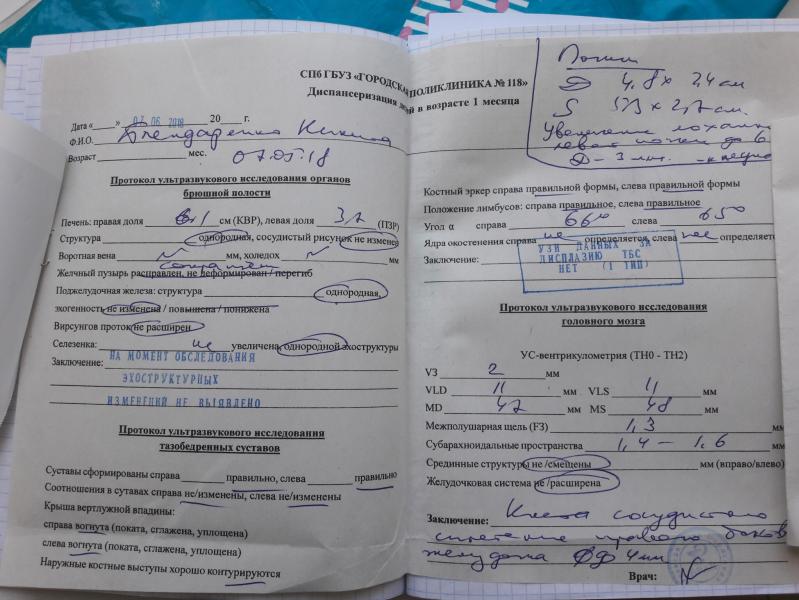 СПб ГБУЗ «ГОРОДСКАЯ ПОЛИКЛИНИКА № 118»
Диспансеризация детей в возрасте 1 месяца
Дата «____» 07 06 2018 20____ г.
Ф.И.О.
Возраст мес. 07.05.18
Протокол ультразвукового исследования органов
брюшной полости
Печень: правая доля см (КВР), левая доля (ПЗР)
Структура однородная, сосудистый рисунок не изменен
Воротная вена мм, холедох мм
Желчный пузырь расправлен, не деформирован / перегиб
Поджелудочная железа: структура однородная,
эхогенность не изменена / повышена / понижена
Вирсунгов проток не расширен
Селезенка: не увеличена, однородной эхоструктуры
Заключение: НА МОМЕНТ ОБСЛЕДОВАНИЯ
ЭХОСТРУКТУРНЫХ
ИЗМЕНЕНИЙ НЕ ВЫЯВЛЕНО
Протокол ультразвукового исследования
тазобедренных суставов
Суставы сформированы справа правильно, слева правильно
Соотношения в сутавах справа не/изменены, слева не/изменены
Крыша вертлужной впадины:
справа вогнута (поката, сглажена, уплощена)
слева вогнута (поката, сглажена, уплощена)
Наружные костные выступы хорошо контурируются
Почки
D 4,8 x 2,4 см
S x 2,7 см.
Увеличение лоханки
левой почки до 6
D - 3 мм.
Костный эркер справа правильной формы, слева правильной формы
Положение лимбусов: справа правильное, слева правильное
Угол α справа 66° слева 65°
Ядра окостенения справа не определяется, слева не определяется
Заключение: УЗИ ДАННЫХ ЗА
ДИСПЛАЗИЮ ТБС
НЕТ (1 ТИП)
Протокол ультразвукового исследования
головного мозга
УС-вентрикулометрия (ТН0 - ТН2)
V3 2 мм
VLD 11 мм VLS 11 мм
MD 47 мм MS 48 мм
Межполушарная щель (F3) 1,3 мм
Субарахноидальные пространства 1,4 - 1,6 мм
Срединные структуры не /смещены мм (вправо/влево)
Желудочковая система не /расширена
Заключение: Киста сосудистого
сплетения правого боков
желудочка 4 мм
Врач: